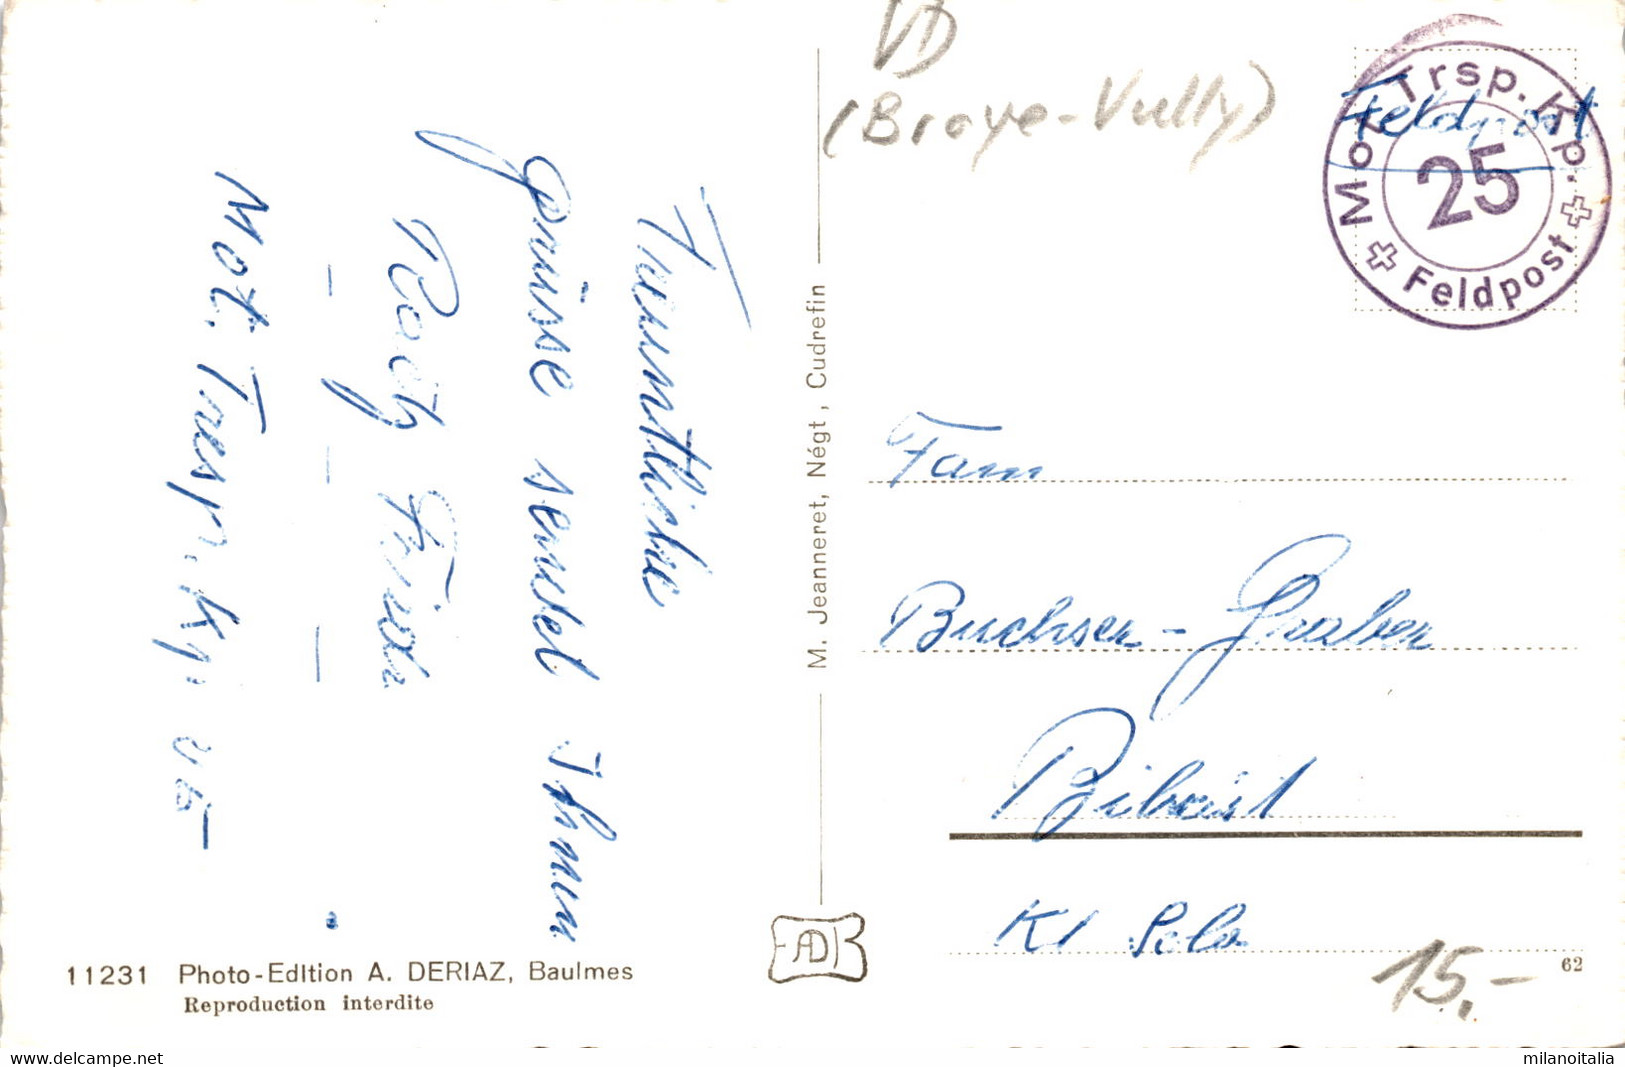 VD
(Broye-Vully)
Feldpost
Mot. Trsp. Kp.
25
Feldpost
Freundliche
grüsse sendet Ihnen
Mot. Transp. Kp. 25
M. Jeanneret, Négt, Cudrefin
Fam
Buchser-Graber
Biberist
Kt Solo
11231 Photo-Edition A. DERIAZ, Baulmes
Reproduction interdite
62
15.-
www.delcampe.net
milanoitalia